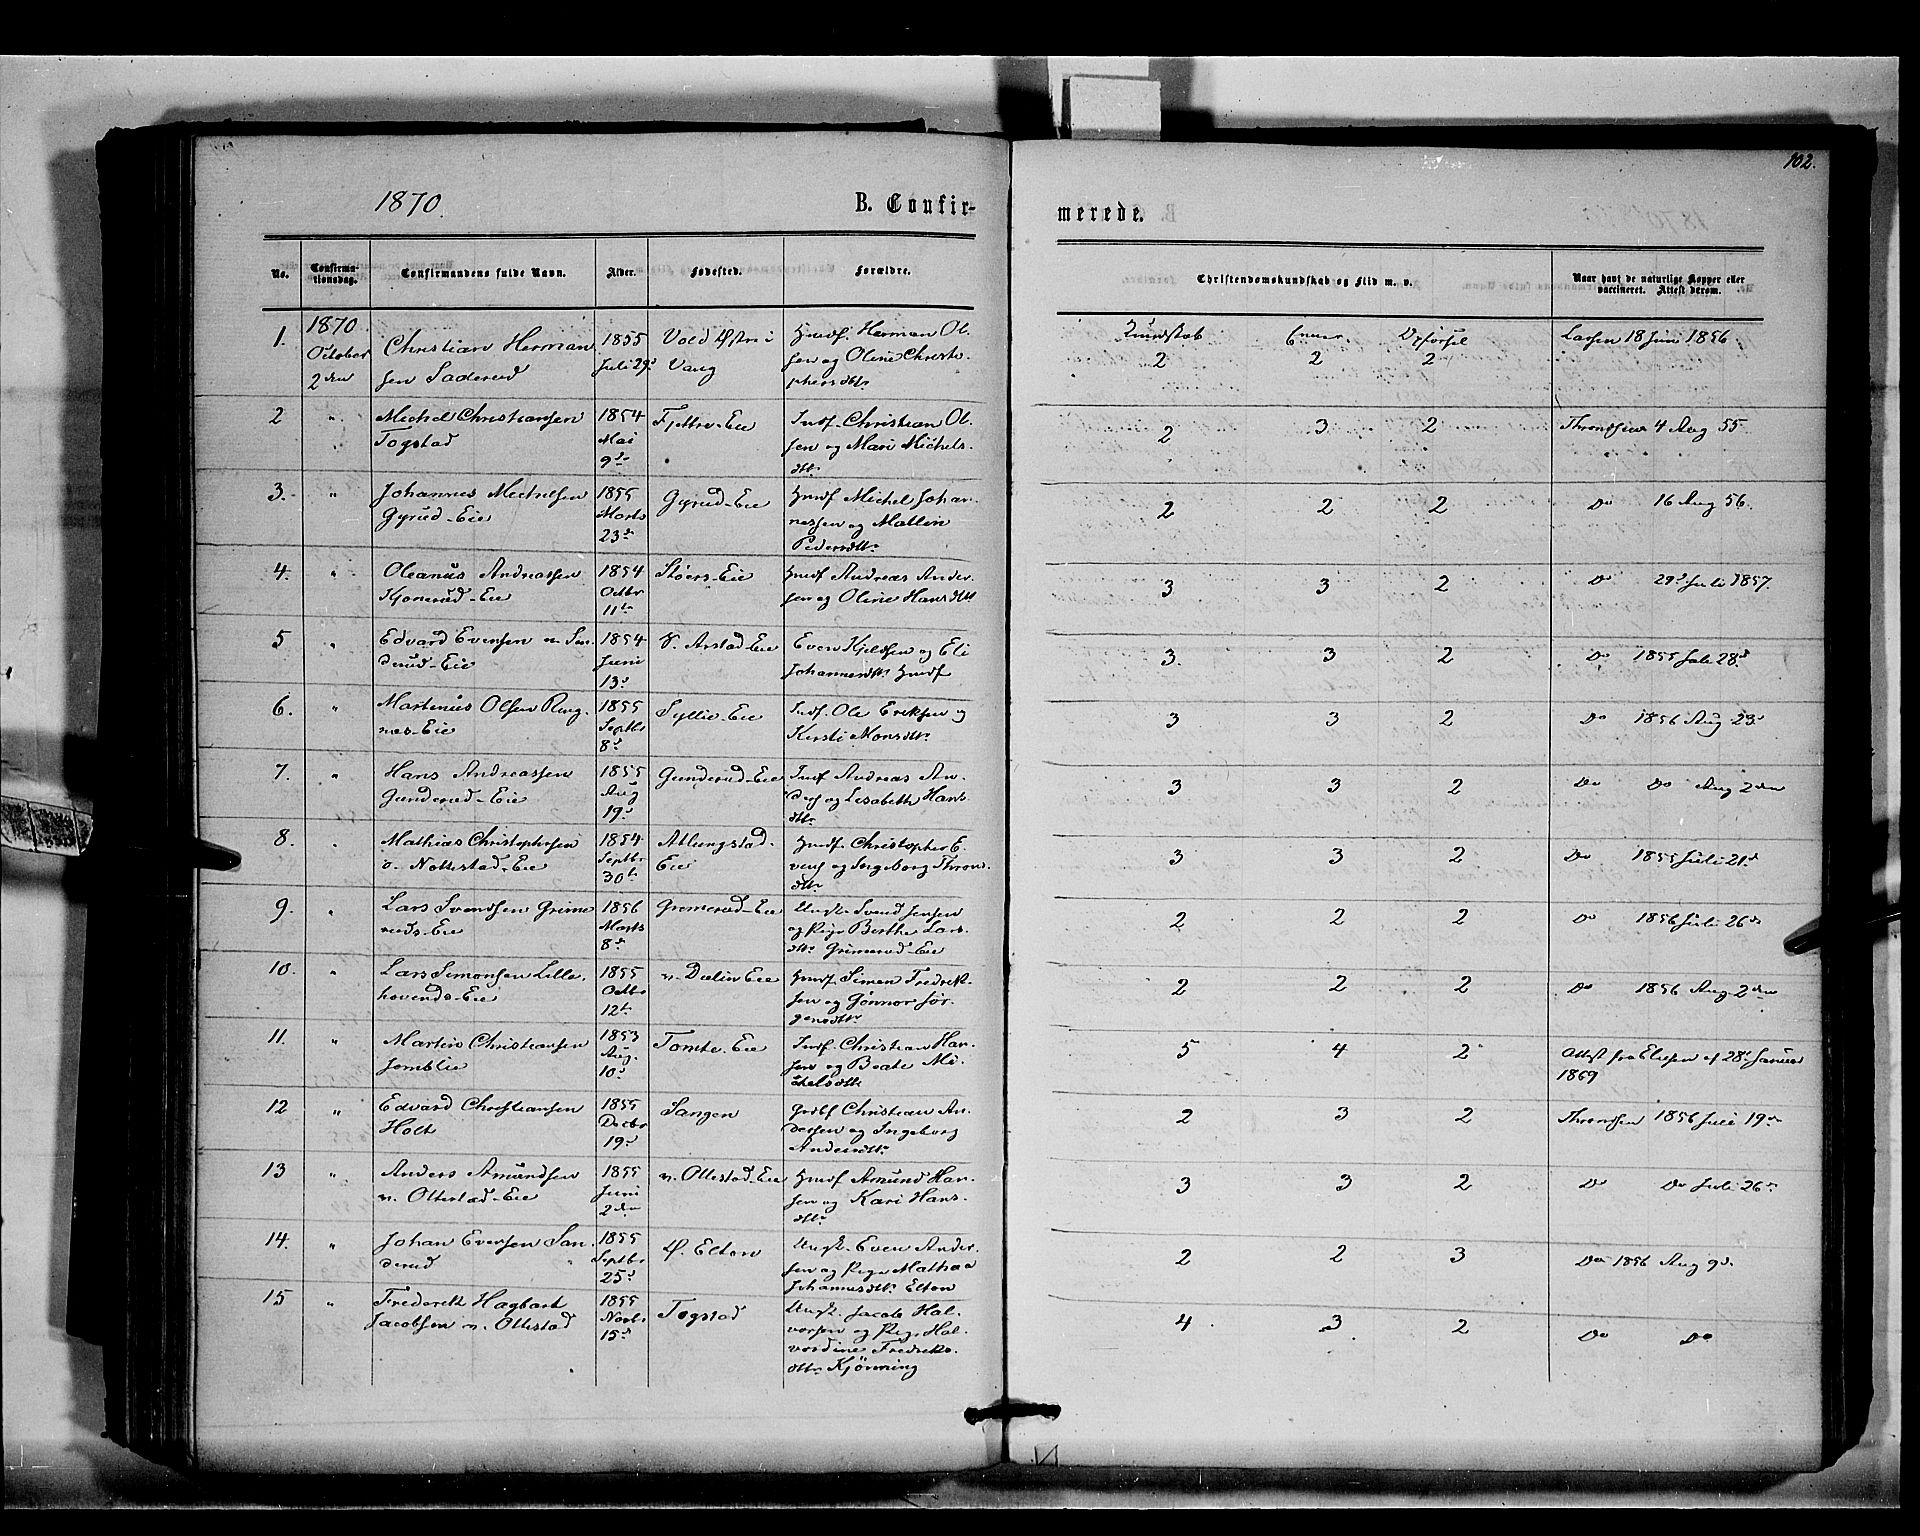 102.
1870.
B. Confir-
merede.
No.
Confirma-
tionsdag.
Confirmandens fulde Navn.
Alder.
Fødested.
Forældre.
Christendomskundskab og Flid m. v.
Naar havt de naturlige Kopper eller
vaccineret. Attest derom.
1.
1870
October
2den
Christian Herman
sen Saderud
1855
Juli 29d
Vold Østre i
Vang
Huusf. Herman Ol-
sen og Oline Christo-
phersdtr
Kundskab
Opførsel
2 2 2
18 Juni 1856
2 "
Michel Christiansen
Togstad
1854
Mai
9de
Fjettre-Eie
Indf. Christian Ol-
sen og Mari Michels-
dtr
2 3 2
Throndsen 4 Aug 55
3. "
Johannes Michelsen
Gyrud-Eie
1855
Marts
23de
Gyrud-Eie
Huusf Michel Johan-
nessen og Mallin
Pedersdtr
2 2 2
Do 16 Aug 56.
4. "
Oleanus Andreassen
Kjonerud-Eie
1854
Octbr
11te
Stoers-Eie
Huusf Andreas Ander-
sen og Oline Hansdtr
3 3 2
Do 29d Juli 1857.
5 "
Edvard Evensen n San-
derud-Eie
1854
Juni
13d
V. Arstad-Eie
Even Kjeldsen og Eli
Johannesdtr Huusf
3. 3 2
Do 1855 Juli 28d
6. "
Martinus Olsen Ring-
nes-Eie
1855
Septbr
8d
Syllie-Eie
Indf. Ole Eriksen og
Kersti Monsdtr
3 3 2
Do 1856 Aug 23d
7. "
Hans Andreassen
Gunderud-Eie
1855
Aug
19d
Gunderud-Eie
Indf Andreas An-
ders og Lisabeth Hans-
dtr
3 3 2
Do Do Aug 2den
8. "
Mathias Christophersen
ø. Nottestad-Eie
1854
Septbr
30te
Atlungstad-
Eie
Huusf. Christopher E-
vens og Ingeborg Thron-
dtr
3 3 2
Do 1855 Juli 21d
9. "
Lars Svendsen Grime
ruds-Eie
1856
Marts
8d
Gremerud-Eie
Ungk. Svend Jensen
og Pige Berthe Lars-
dtr Grimerud-Eie
2 2 2
Do 1856 Juli 26de
10. "
Lars Simonsen Lille-
hovende-Eie
1855
Octbr
12te
n. Dælin Eie
Huusf. Simen Fredrik-
sen og Gonnor Jør-
gensdtr
2 2 2
Do 1856 Aug 2den
11. "
Martin Christiansen
Jomblie
1853
Aug.
10d
Tomte-Eie
Indf. Christian Han-
sen og Beate Mi-
chelsdtr
5 4 2
Attest fra Eliesen af 28d Januar
1869
12 "
Edvard Christiansen
Holt
1855
Decbr
19d
Sangen
Christian An-
dersen og Ingeborg
Andersdtr
2 3 2
Throndsen 1856 Juli 19de
13 "
Anders Amundsen
n. Ottestad-Eie
1855
Juni
2den
n. Ottestad-Eie
Huusf Amund Han-
sen og Kari Hans-
dtr
3 3 2
Do Do Juli 26de
14. "
Johan Evensen San-
derud
1855
Septbr
25d
Ø. Elton
Ungk. Even Ander-
sen og Pige Mathea
Johannesdtr Elton
2 2 3
Do 1856 Aug 9de
15 "
Frederik Hagbart
Jacobsen n. Ottestad
1855
Novbr
15d
Togstad
Ungk. Jacob Hal-
vorsen og Pige Hal-
vordine Fredriks-
dtr Kjønning
4 3 2
Do Do